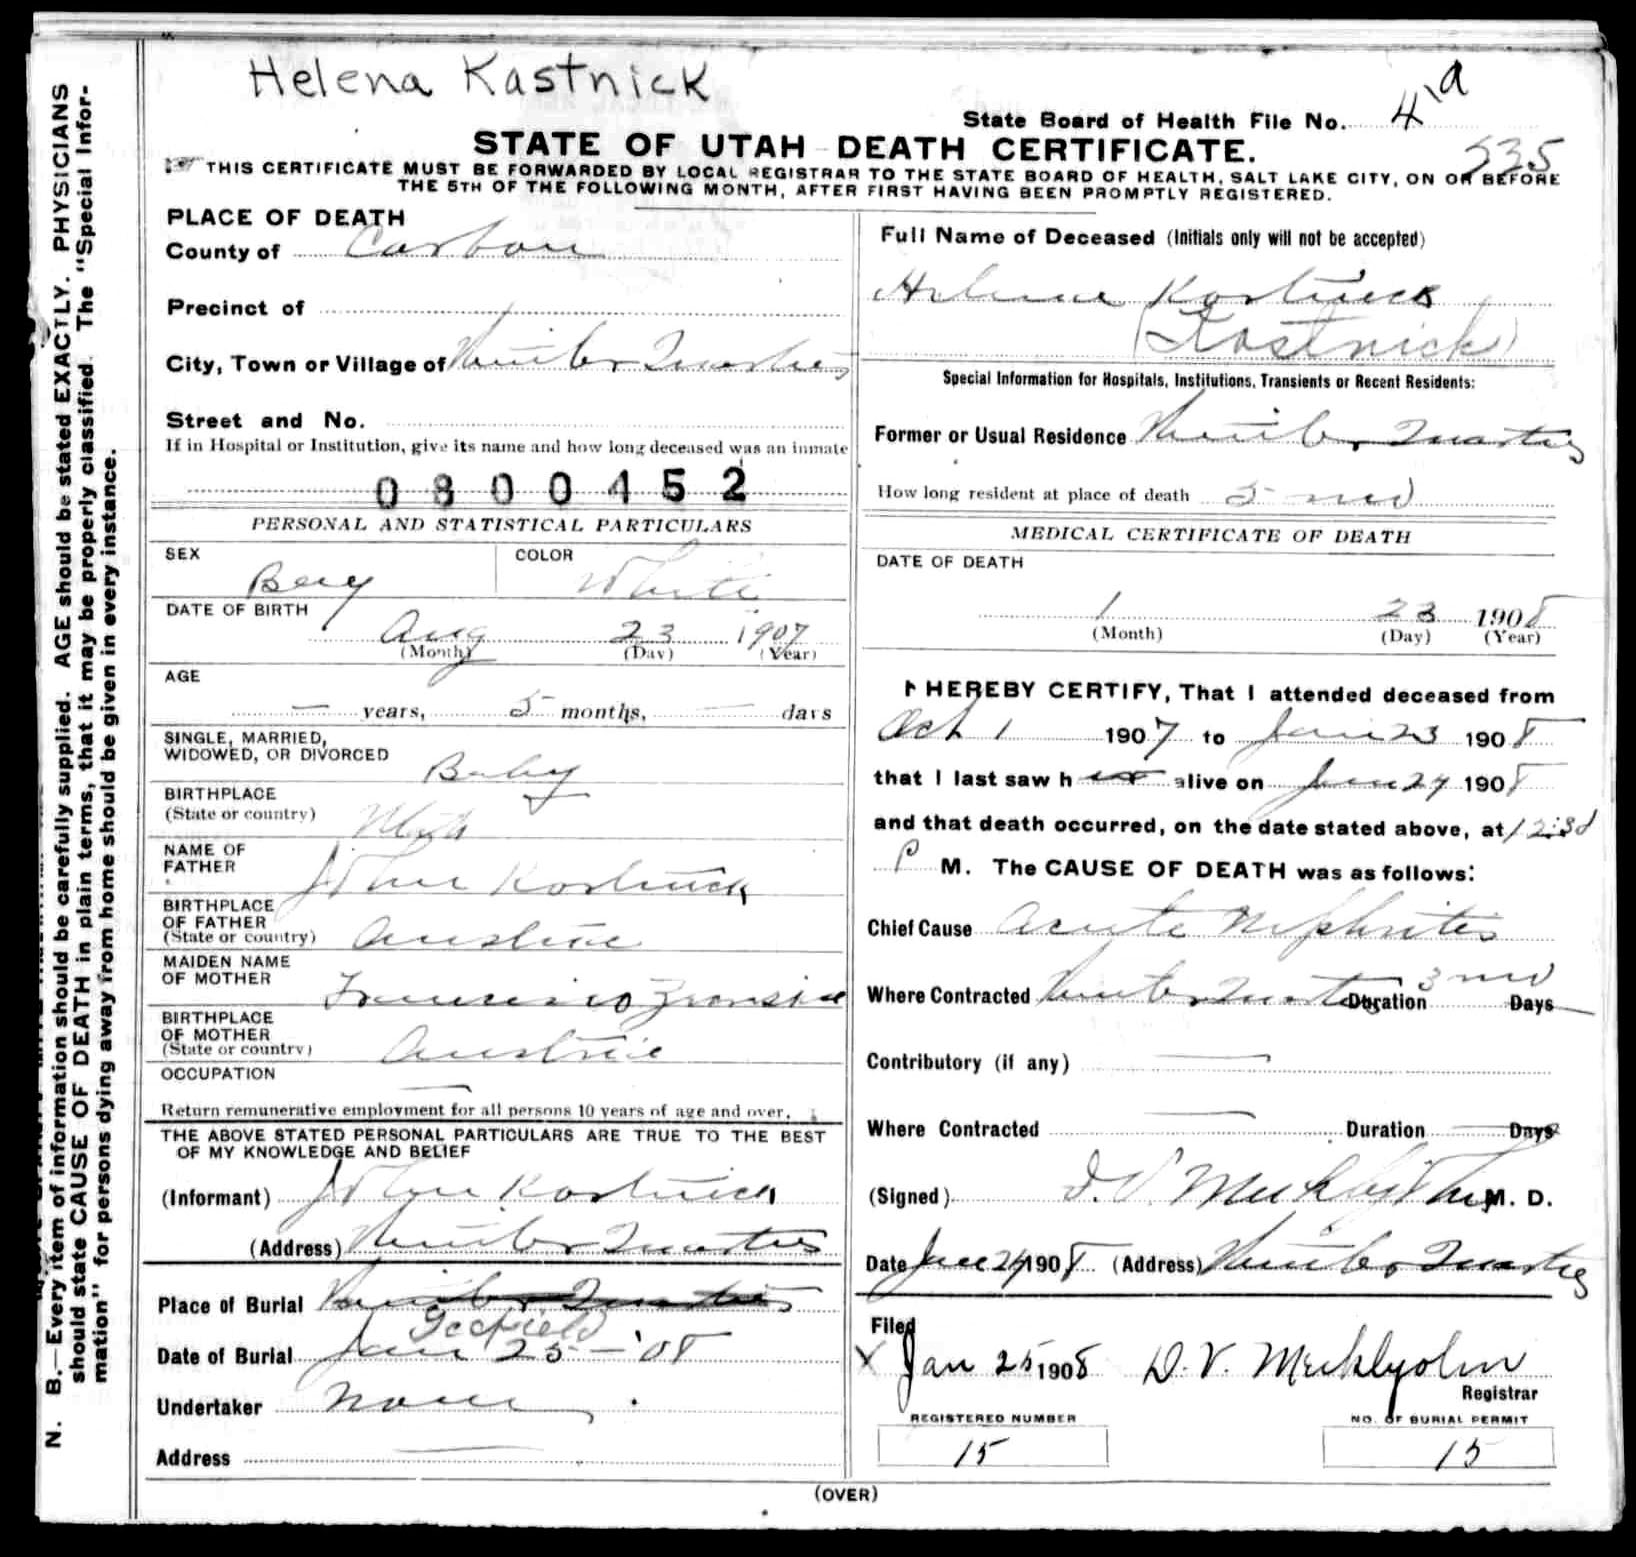 Helena Kastnick
State Board of Health File No. 4 a
535
STATE OF UTAH DEATH CERTIFICATE.
THIS CERTIFICATE MUST BE FORWARDED BY LOCAL REGISTRAR TO THE STATE BOARD OF HEALTH, SALT LAKE CITY, ON OR BEFORE
THE 5TH OF THE FOLLOWING MONTH, AFTER FIRST HAVING BEEN PROMPTLY REGISTERED.
N. B.—Every item of information should be carefully supplied. AGE should be stated EXACTLY. PHYSICIANS
should state CAUSE OF DEATH in plain terms, that it may be properly classified. The "Special Infor-
mation" for persons dying away from home should be given in every instance.
PLACE OF DEATH
County of Carbon
Precinct of
City, Town or Village of Winter Quarters
Street and No.
If in Hospital or Institution, give its name and how long deceased was an inmate
0800452
PERSONAL AND STATISTICAL PARTICULARS
SEX
Boy
COLOR
White
DATE OF BIRTH
Aug 23 1907
(Month) (Day) (Year)
AGE
— years, 5 months, — days
SINGLE, MARRIED,
WIDOWED, OR DIVORCED
Baby
BIRTHPLACE
(State or country) Utah
NAME OF
FATHER
John Kostnick
BIRTHPLACE
OF FATHER
(State or country) Austria
MAIDEN NAME
OF MOTHER
BIRTHPLACE
OF MOTHER
(State or country) Austria
OCCUPATION
—
Return remunerative employment for all persons 10 years of age and over.
THE ABOVE STATED PERSONAL PARTICULARS ARE TRUE TO THE BEST
OF MY KNOWLEDGE AND BELIEF
(Informant) John Kostnick
(Address) Winter Quarters
Place of Burial Winter Quarters
Scofield
Date of Burial Jan 25 — '08
Undertaker None
Address —
Full Name of Deceased (Initials only will not be accepted)
Helena Kostnick
(Kostnick)
Special Information for Hospitals, Institutions, Transients or Recent Residents:
Former or Usual Residence Winter Quarters
How long resident at place of death 5 mo
MEDICAL CERTIFICATE OF DEATH
DATE OF DEATH
1 23 1908
(Month) (Day) (Year)
I HEREBY CERTIFY, That I attended deceased from
Oct 1 1907 to Jan 23 1908
that I last saw h alive on Jan 24 1908
and that death occurred, on the date stated above, at 12:30
P M. The CAUSE OF DEATH was as follows:
Chief Cause Acute Nephritis
Where Contracted Winter Quarters Duration 3 mo Days
Contributory (if any) —
Where Contracted — Duration — Days
(Signed) M. D.
Date Jan 24 1908 (Address) Winter Quarters
Filed
X Jan 25 1908 D. V.
Registrar
REGISTERED NUMBER
15
NO. OF BURIAL PERMIT
15
(OVER)